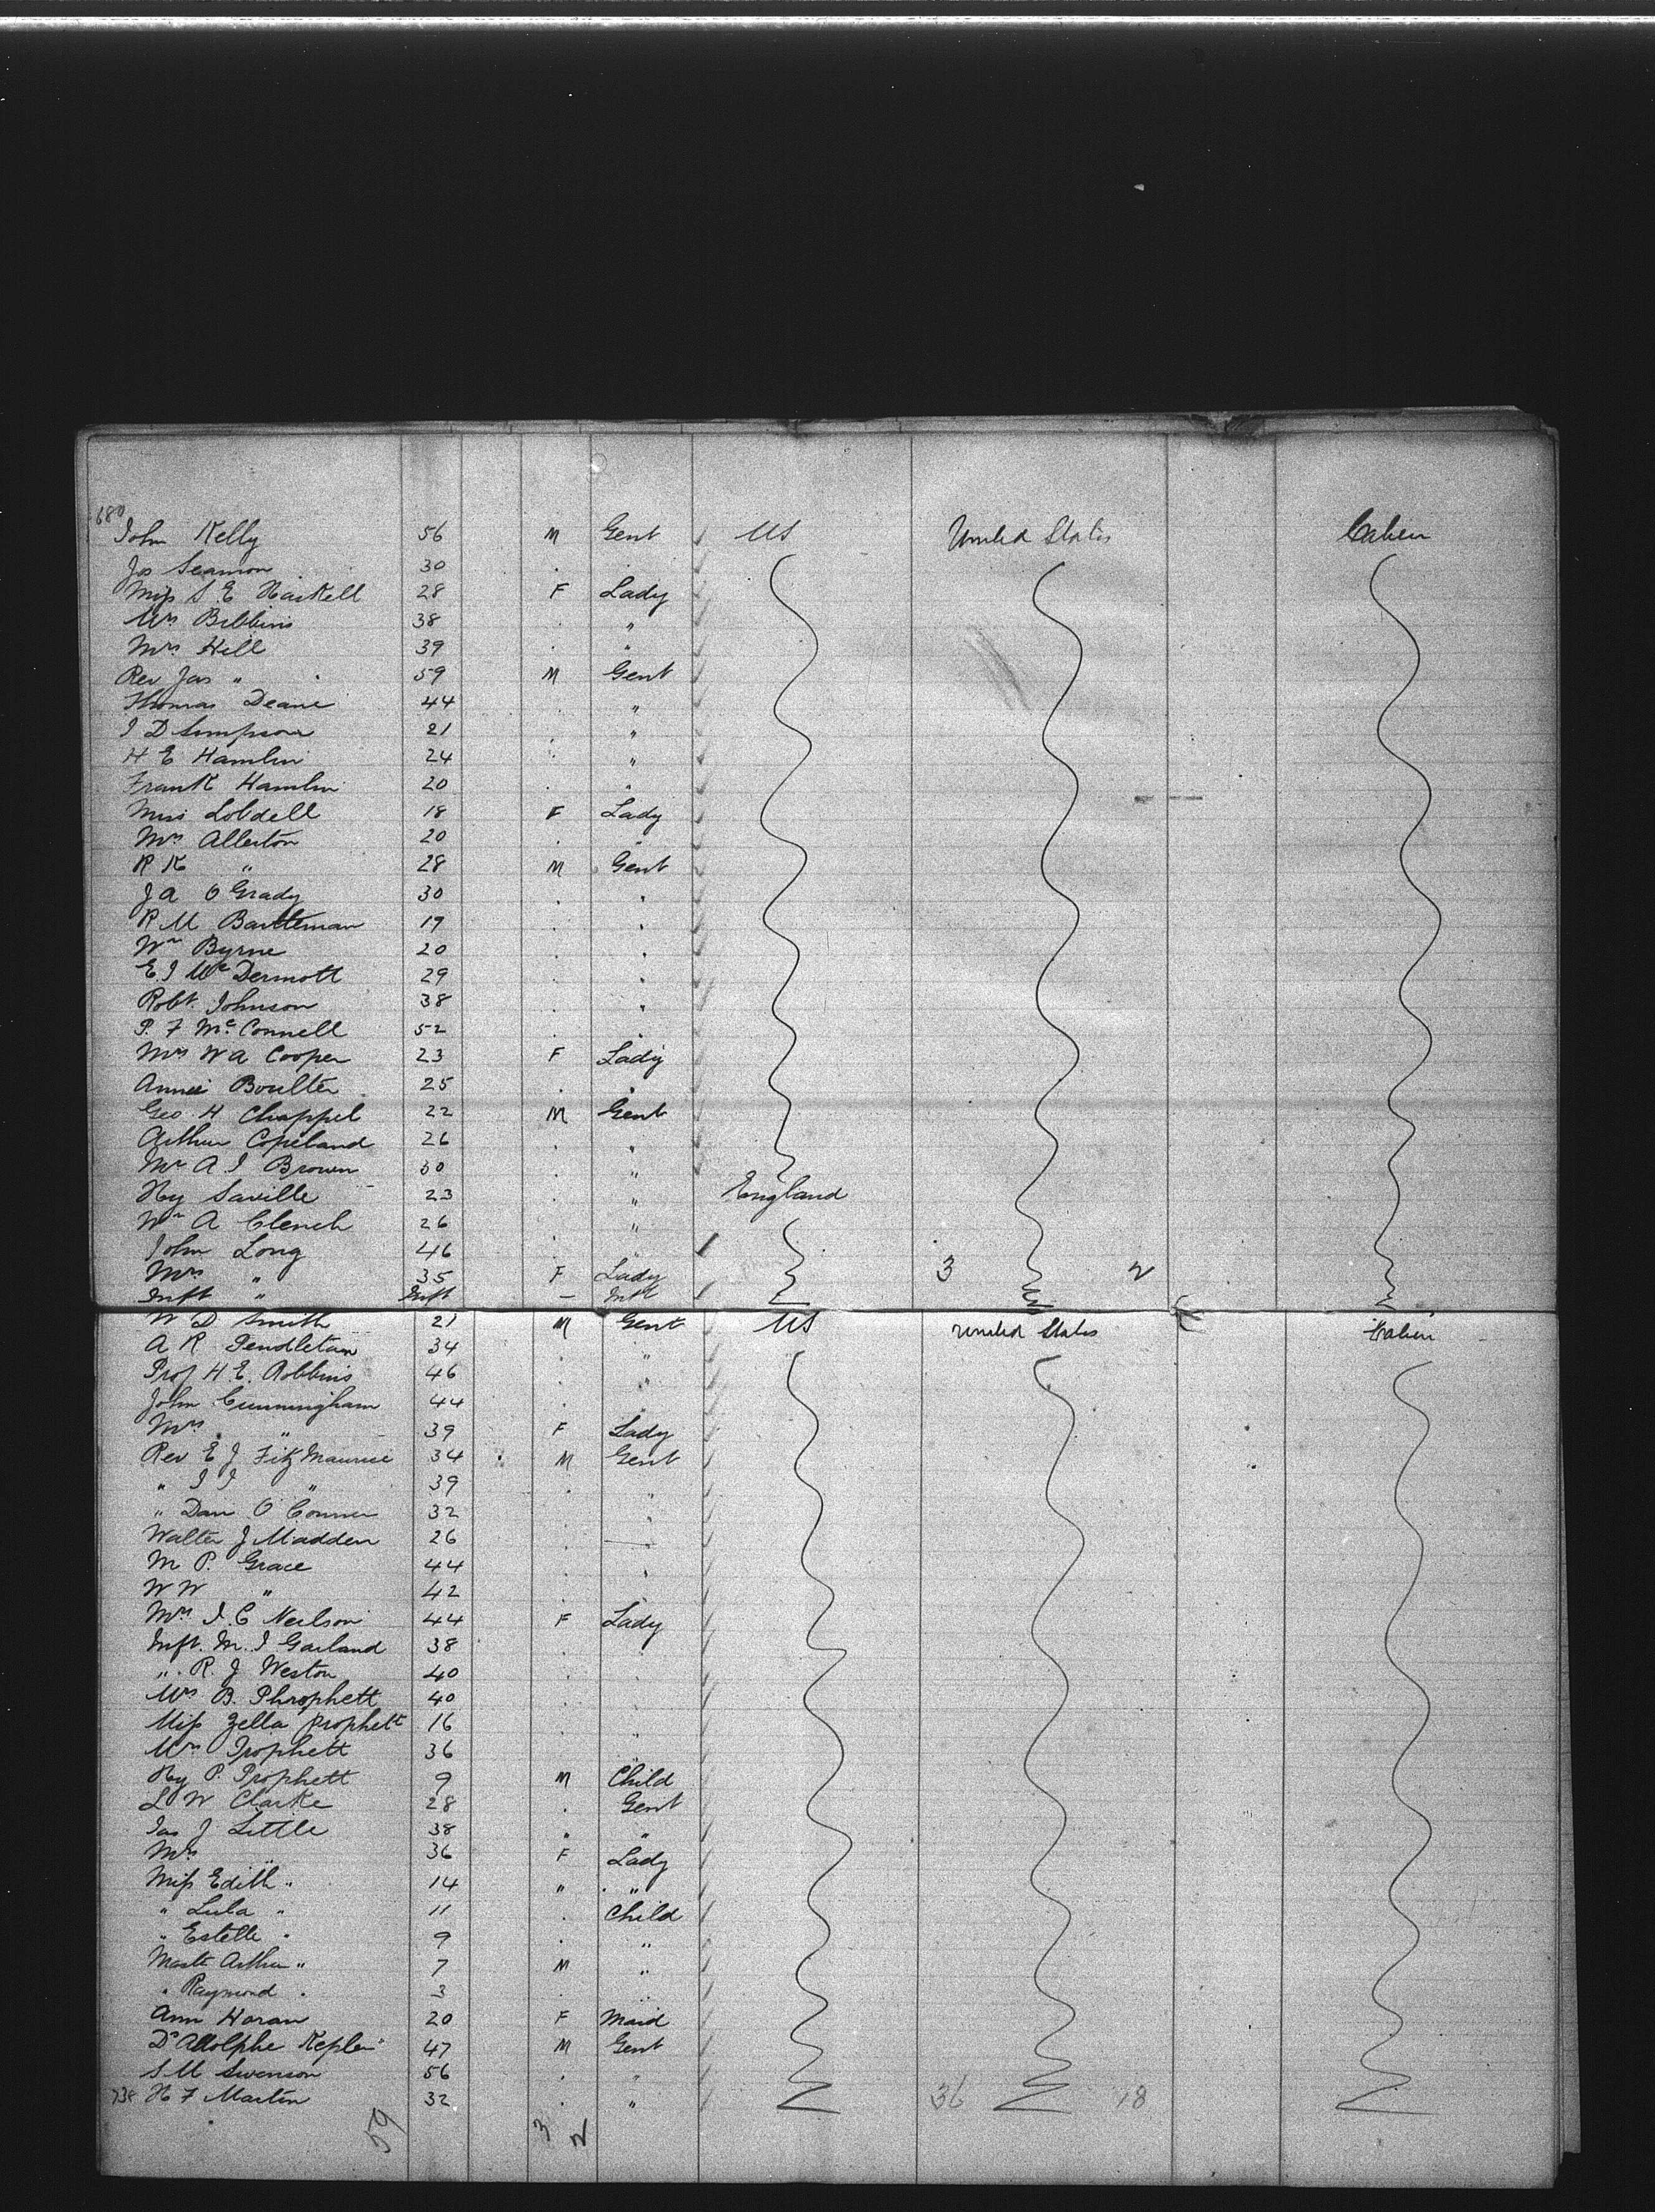 680
John Kelly 56 M Gent US United States Cabin
Jos Seamon 30 . .
Miss S E Haskell 28 F Lady
Mrs Bibbins 38 . "
Mrs Hill 39 . "
Rev Jas " 59 M Gent
Thomas Deane 44 . "
I D Simpson 21 . "
H E Hamlin 24 . "
Frank Hamlin 20 . "
Miss Lobdell 18 F Lady
Mrs Allerton 20 . "
R K " 28 M Gent
J A O Grady 30 . "
R M Bartleman 19 . "
Wm Byrne 20 . "
E. J Mc Dermott 29 . "
Robt. Johnson 38 . "
P. F Mc Connell 52 . "
Mrs W A Cooper 23 F Lady
Annie Boulter 25 . "
Geo H Chappel 22 M Gent
Arthur Copeland 26 . "
Mr A J Brown 30 . "
Hy Saville 23 . " England
Wm A Clench 26 . "
John Long 46 . " 3 2
Mrs " 35 F Lady
Inft " Inft — Inft
W D Smith 21 M Gent US United States Cabin
A R Pendleton 34 . "
Prof H E. Robbins 46 . "
John Cunningham 44 .
Mrs " 39 F Lady
Rev E J FitzMaurice 34 M Gent
" J J " 39 . "
" Dan O'Connor 32 . "
Walter J Madden 26 . —
M P. Grace 44 . "
W W " 42 . "
Mrs J. C Neilson 44 F Lady
M. J Garland 38 . "
" R. J Weston 40 . "
Mrs B. Phrophett 40 . "
Miss Zella Prophett 16 . "
Mrs Prophett 36 . "
Hy P. Prophett 9 M Child
L W Clarke 28 . Gent
Jas J Little 38 " "
Mrs " 36 F Lady
Miss Edith " 14 " "
" Lula " 11 . Child
" Estelle " 9 . "
Mastr Arthur " 7 M "
" Raymond " 3 . "
Ann Horan 20 F Maid
Dr Adolphe Kepler 47 M Gent
S M Swenson 56 . "
738 H F Martin 32 . " 36 18
59 3 2